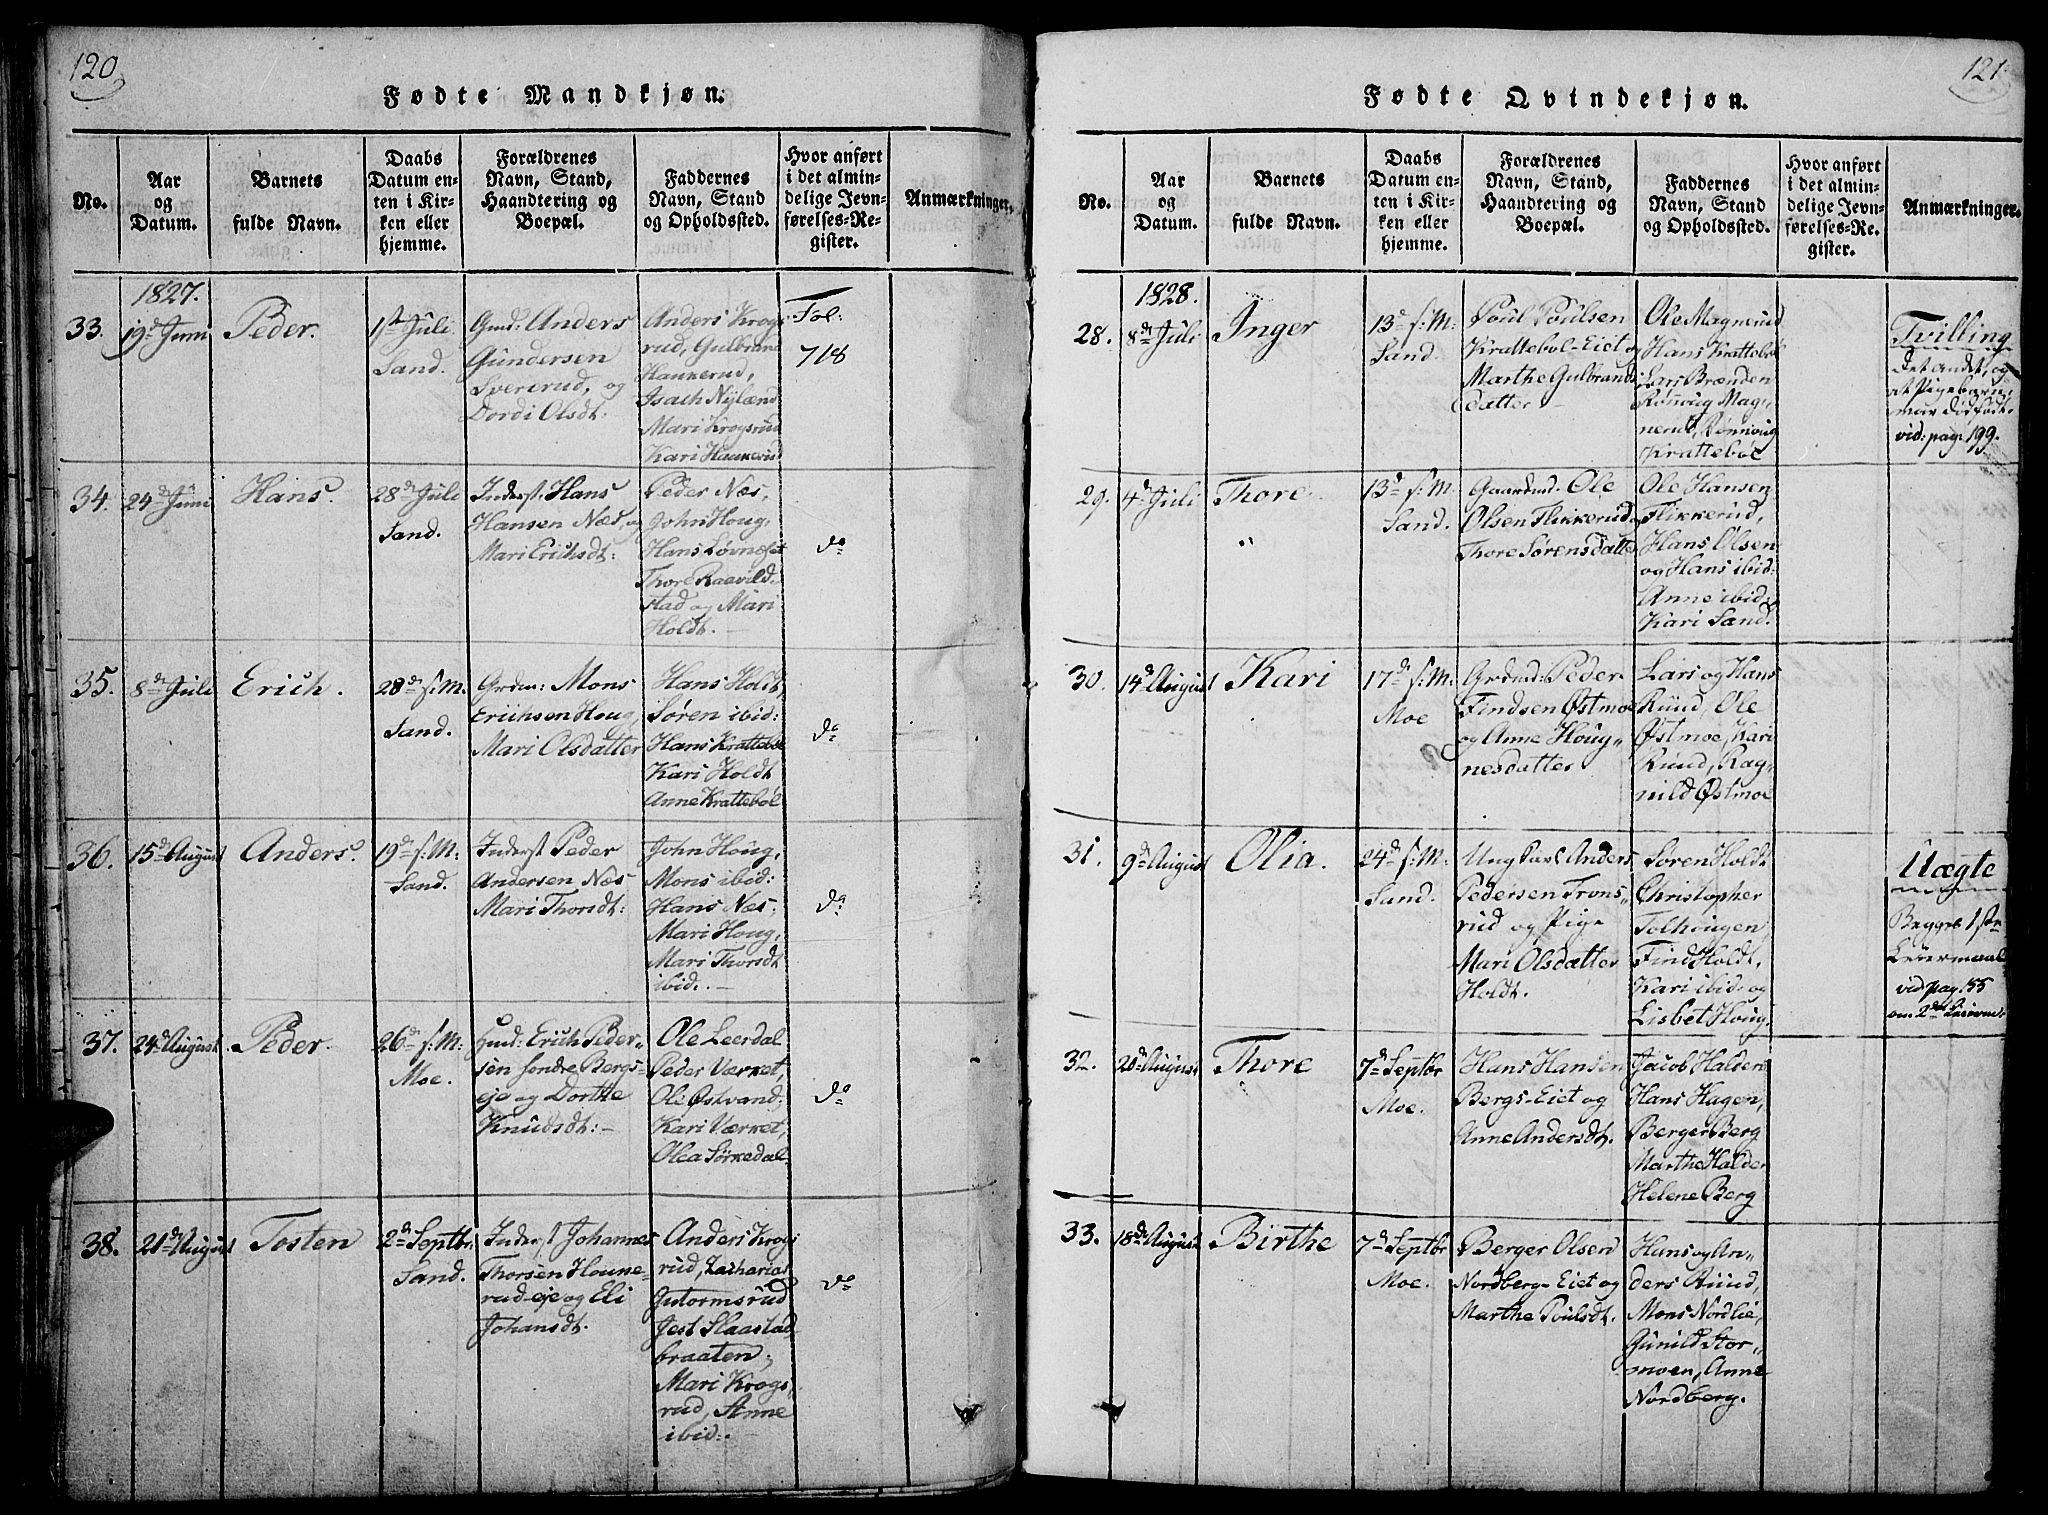 120
Fødte Mandkjøn.
No.
Aar
og
Datum.
Barnets
fulde Navn.
Daabs
Datum en-
ten i Kir-
ken eller
hjemme.
Forældrenes
Navn, Stand,
Haandtering og
Boepæl.
Faddernes
Navn, Stand
og Opholdssted.
Hvor anført
i det almin-
delige Jevn-
førelses-Re-
gister.
Anmærkninger.
1827.
33.
19d Juni
Peder.
1st Juli
Sand.
Gmd: Anders
Gundersen
Svererud, og
Dordi Olsdt:
Anders Krogs
rud, Gulbrand
Haukerud,
Isach Nylænd
Mari Krogsrud
Kari Haukerud
Fol:
718
34.
24d Juni
Hans.
28d Juli
Sand.
Inderst: Hans
Hansen Næs, og
Mari Erichsdt:
Peder Næs,
John Houg,
Hans Løvnæset
Thore Raavild-
stad og Mari
Holdt. —
do
35.
8d Juli
Erich.
28d f: M.
Sand.
Grdm: Mons
Erichsen Houg,
Mari Olsdatter
Hans Holdt,
Søren ibid:
Hans Krattebøe
Kari Holdt
Anne Krattebøl
do
36.
15d August
Anders.
19d f: M:
Sand.
Inderst Peder
Andersen Næs
Mari Thorsdt:
John Houg,
Mons ibid:
Hans Næs;
Mari Houg,
Mari Thorsdt
ibid: —
do
37.
24d August
Peder.
26d f: M:
Moe.
Hmd: Erich Peder-
sen søndre Bergs-
eje og Dorthe
Knudsdt: —
Ole Leerdal
Peder Værket,
Ole Østvand;
Kari Værket,
Olea Sørkedal.
do
38.
21d August
Tosten
2d Septbr
Sand.
Inderst Johannes
Thorsen Houne-
rud-eje og Eli
Johansdt.
Anders Krogs
rud, Zacharias
Gutormsrud
Jest Slaastad-
braaten;
Mari Krogs,
rud, Anne
ibid: —
do
121
Fødte Qvindekjøn.
No.
Aar
og
Datum.
Barnets
fulde Navn.
Daabs
Datum en-
ten i Kir-
ken eller
hjemme.
Forældrenes
Navn, Stand,
Haandtering og
Boepæl.
Faddernes
Navn, Stand
og Opholdssted.
Hvor anført
i det almin-
delige Jevn-
førelses-Re-
gister.
Anmærkninger.
1828.
28.
8d Juli
Inger
13d f: M:
Sand.
Poul Poulsen
Krattebøl-Eiet og
Marthe Gulbrands
datter —
Ole Magnerud
Hans Krattebøl
Lars Brænden
Rønnoug Mag,
nerud, Rønnoug
Krattebøe
Tvilling
Det andet, og
at Pigebarn,
var dødfødt.
vid: pag: 199.
29.
4d Juli
Thore.
13d f: M.
Sand.
Gaardmd. Ole
Olsen Flikkerud og
Thore Sørensdatter
Ole Hansen
Flikkerud,
Hans Olsen
og Hans ibid:
Anne ibid:
Kari Sand.
30.
14d August
Kari
17d f: M:
Moe
Grdmd: Peder
Findsen Østmoe
og Anne Houg„
nesdatter
Lars og Hans
Ruud, Ole
Østmoe, Kari
Ruud, Rag„
nild Østmoe
31.
9d August
Olia.
24d f: M:
Sand.
Ung Karl Anders
Pedersen Trons„
rud og Pige
Mari Olsdatter
Holdt.
Søren Holdt
Christopher
Tolhougen
Find Holdt,
Kari ibid: og
Lisbet Houg.
Uægte
Begges 1ste
Leiermaal
vid pag 155
om 2det
32.
20d August
Thore
7d Septbr
Moe.
Hans Hansen
Bergs-Eiet og
Anne Andersdt.
Jacob Halden
Hans Hagen,
Berger Berg
Marthe Halden
Helene Berg
33.
18d August
Birthe
7d Septbr
Moe.
Berger Olsen
Nordberg-Eiet og
Marthe Poulsdt.
Hans og An„
ders Ruud,
Mons Nordlie,
Gunild Stor„
moen, Anne
Nordberg.